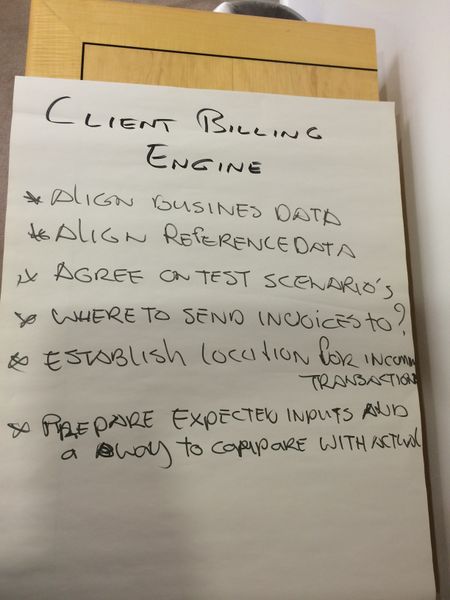 CLIENT BILLING
ENGINE
* ALIGN BUSINES DATA
* ALIGN REFERENCE DATA
* AGREE ON TEST SCENARIO'S
* WHERE TO SEND INVOICES TO?
* ESTABLISH LOCATION FOR
TRANSACTION
* PREPARE EXPECTED INPUTS AND
a way to COMPARE WITH ACTUAL